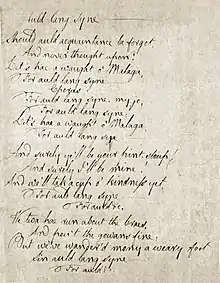 Auld lang syne
Should auld acquaintance be forgot
And never thought upon?
Let's hae a waught o' Malaga
For auld lang syne
Chorus
For auld lang syne, my jo,
For auld lang syne
Let's hae a waught o' Malaga
For auld lang syne
And surely ye'll be your pint stoup!
And surely I'll be mine
And we'll tak a cup o' kindness yet
For auld lang syne
For auld &c.
We twa hae run about the braes,
And pou't the gowans fine,
But we've wander'd mony a weary foot
Sin auld lang syne
For auld